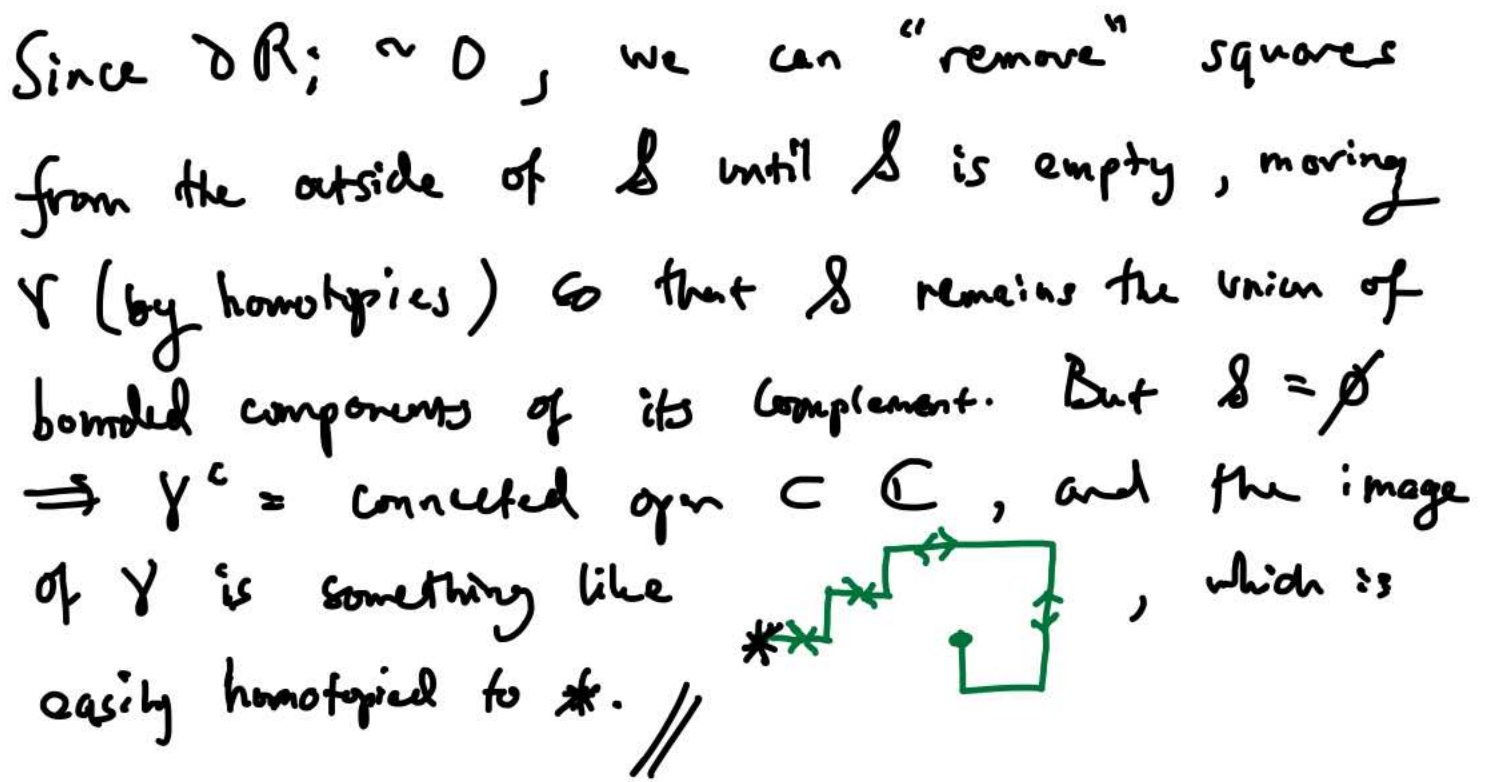 Since ∂Rᵢ ~ 0, we can "remove" squares
from the outside of 𝒮 until 𝒮 is empty, moving
γ (by homotopies) so that 𝒮 remains the union of
bounded components of its complement. But 𝒮 = ∅
⟹ γᶜ = connected open ⊂ ℂ, and the image
of γ is something like * , which is
easily homotopied to *. //